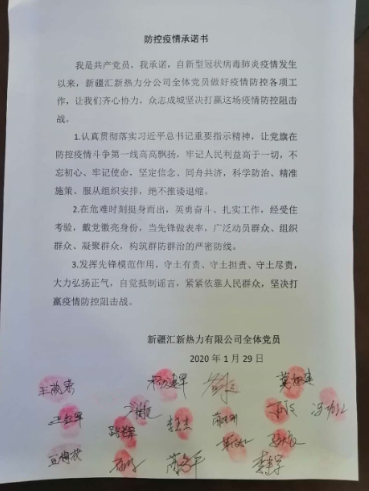 防控疫情承诺书
我是共产党员，我承诺，自新型冠状病毒肺炎疫情发生
以来，新疆汇新热力分公司全体党员做好疫情防控各项工
作，让我们齐心协力，众志成城坚决打赢这场疫情防控阻击
战。
1.认真贯彻落实习近平总书记重要指示精神，让党旗在
防控疫情斗争第一线高高飘扬，牢记人民利益高于一切，不
忘初心、牢记使命，坚定信念、同舟共济，科学防治、精准
施策、服从组织安排，绝不推诿退缩。
2.在危难时刻挺身而出，英勇奋斗、扎实工作，经受住
考验，戴党徽亮身份，当先锋做表率，广泛动员群众、组织
群众、凝聚群众，构筑群防群治的严密防线。
3.发挥先锋模范作用，守土有责、守土担责、守土尽责，
大力弘扬正气，自觉抵制谣言，紧紧依靠人民群众，坚决打
赢疫情防控阻击战。
新疆汇新热力有限公司全体党员
2020 年 1 月 29 日